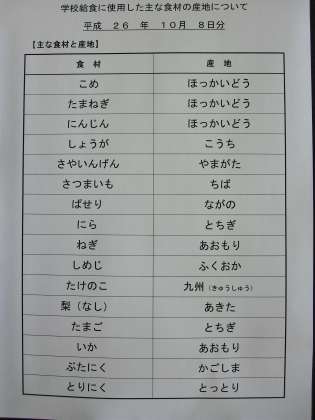 学校給食に使用した主な食材の産地について
平成 26 年 10月 8日分
【主な食材と産地】
食 材 産 地
こめ ほっかいどう
たまねぎ ほっかいどう
にんじん ほっかいどう
しょうが こうち
さやいんげん やまがた
さつまいも ちば
ぱせり ながの
にら とちぎ
ねぎ あおもり
しめじ ふくおか
たけのこ 九州（きゅうしゅう）
梨（なし） あきた
たまご とちぎ
いか あおもり
ぶたにく かごしま
とりにく とっとり